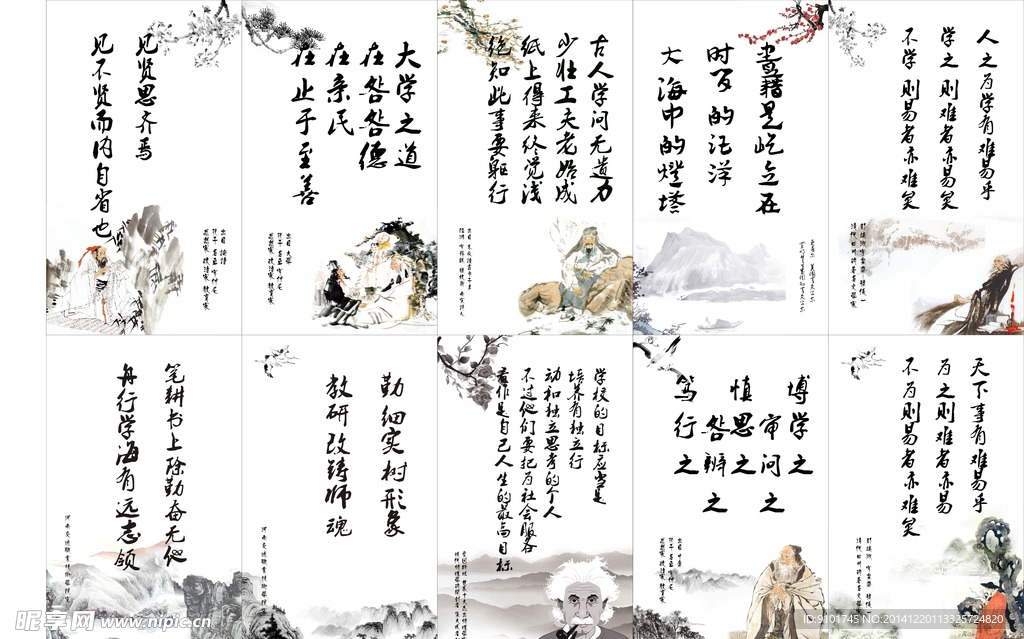 见贤思齐焉
见不贤而内自省也
大学之道
在咎咎德
在亲民
在止于至善
古人学问无遗力
少壮工夫老始成
纸上得来终觉浅
绝知此事要躬行
书籍是屹立在
时间的汪洋
大海中的灯塔
人之为学有难易乎
学之则难者亦易矣
不学则易者亦难矣
笔耕书上除勤奋无他
舟行学海有远志领
勤细实树形象
教研改铸师魂
学校的目标应当是
培养有独立行
动和独立思考的个人
不过他们要把为社会服务
看作是自己人生的最高目标
博学之
审问之
慎思之
咎辨之
笃行之
天下事有难易乎
为之则难者亦易
不为则易者亦难矣
昵享网 www.nipic.cn
ID:9101745 NO:20141220113325724820